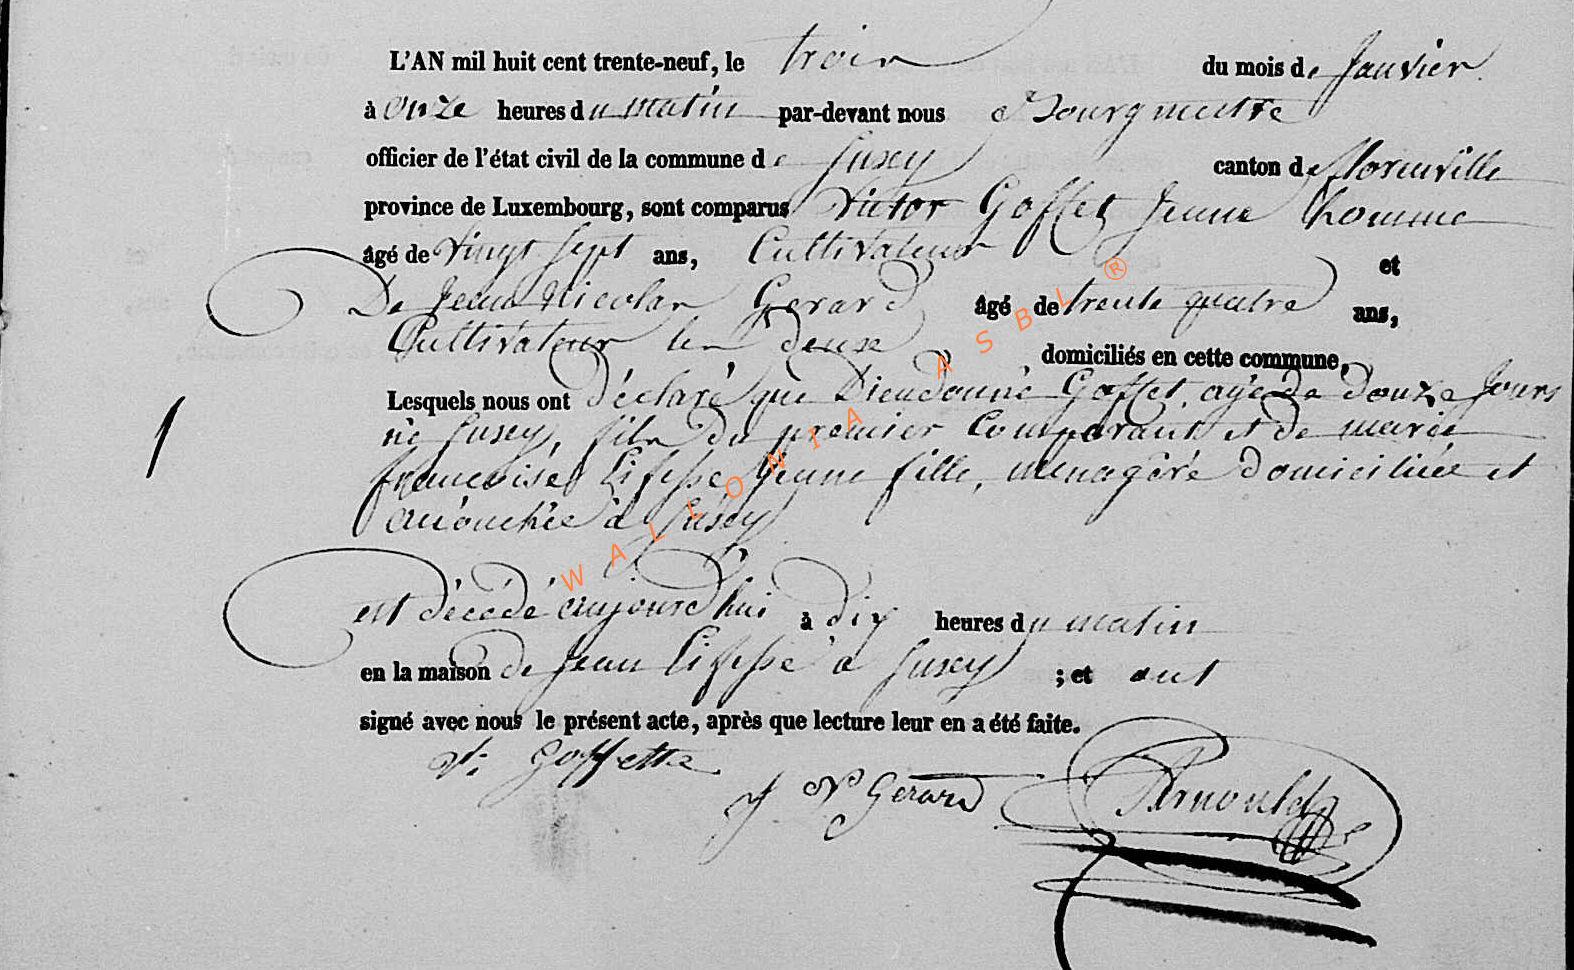 L'AN mil huit cent trente-neuf, le trois du mois de Janvier
à onze heures du matin par-devant nous Bourgmestre
officier de l'état civil de la commune de Suxey canton de Florenville
province de Luxembourg, sont comparus Victor Goffet Jeune homme
âgé de vingt sept ans, Cultivateur et
De Jean Nicolas Gerard âgé de trente quatre ans,
Cultivateur les deux domiciliés en cette commune,
Lesquels nous ont déclaré que Dieudonné Goffet, agé de douze Jours
né Suxey, fils du premier Comparant et de marie
francoise Jeune fille, menagère domiciliée et
accouchée à Suxey
est décédé aujourd'hui à dix heures du matin
en la maison de Jean à Suxey ; et ont
signé avec nous le présent acte, après que lecture leur en a été faite.
Vr Goffette
J N Gerard
Arnould
1
WALLONIA ASBL ®